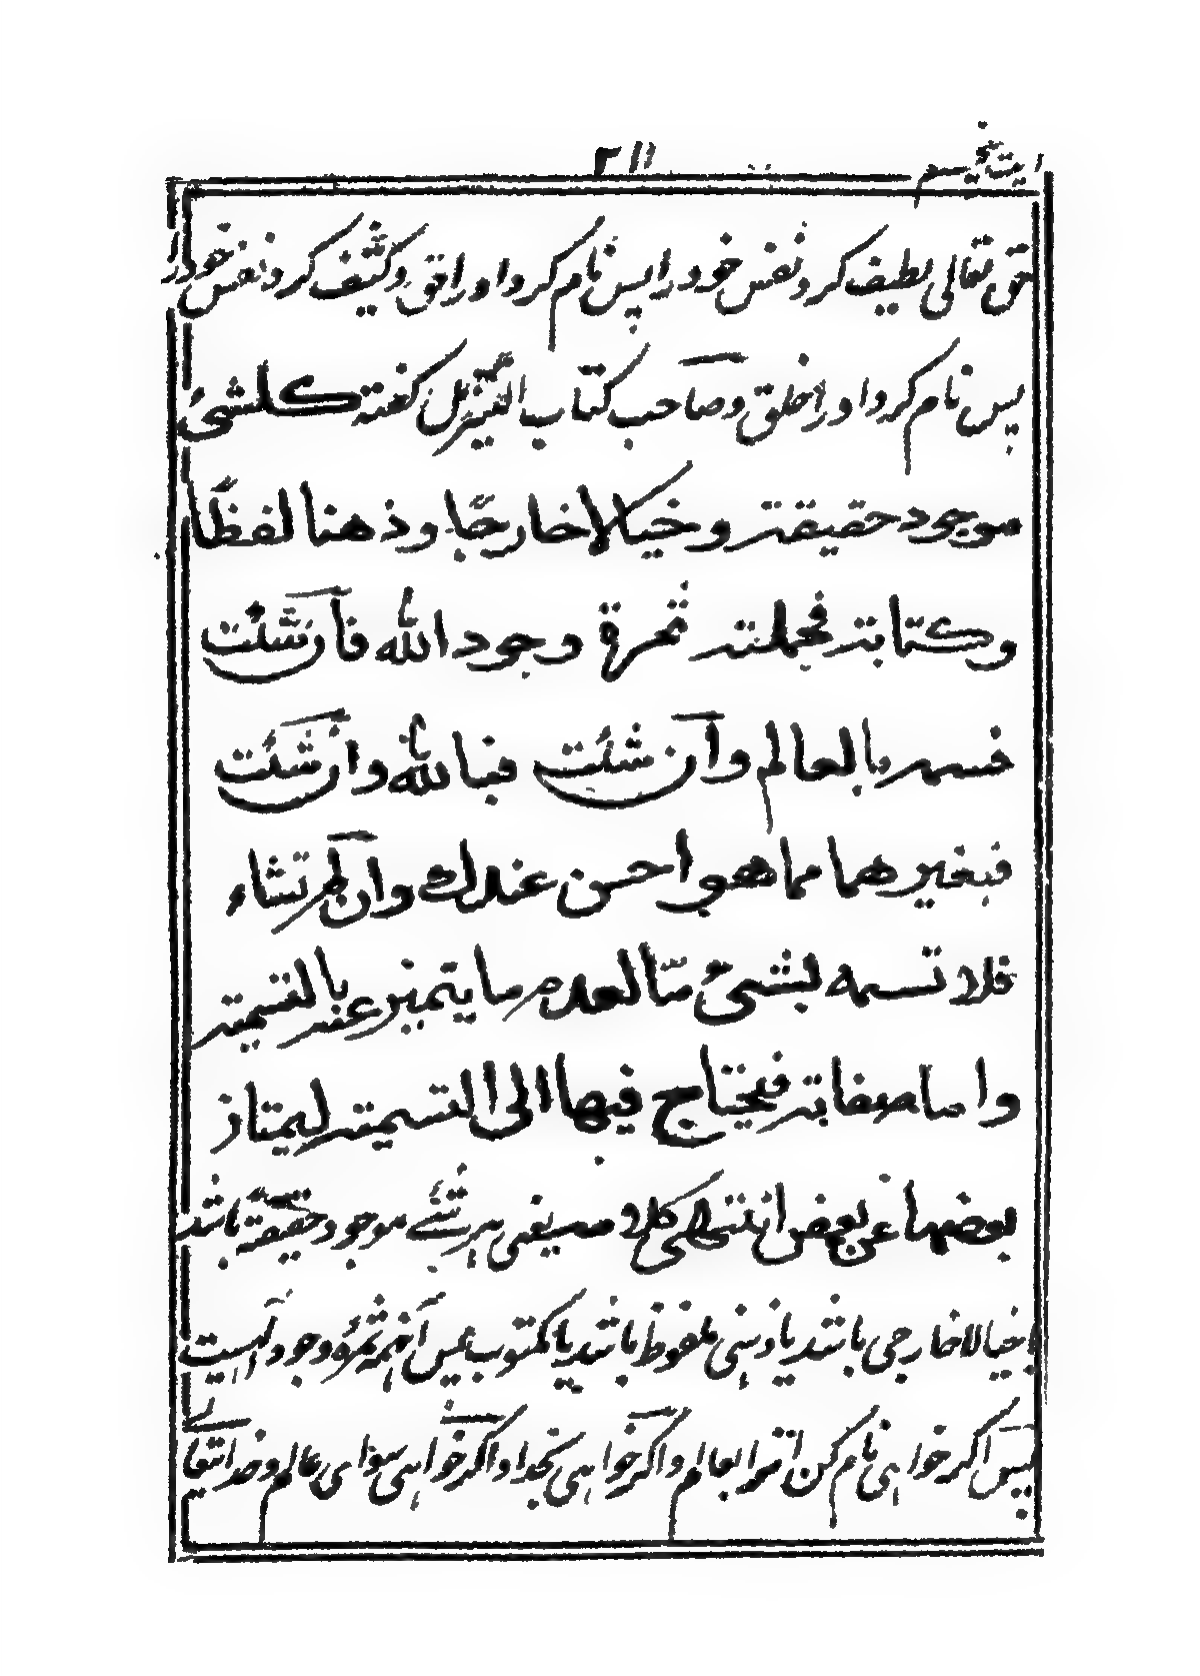 ۲۱۱
حق تعالی لطیف کرد نفس خود را پس نام کرد اورا حق وکثیف کرد نفس خود را
پس نام کرد اورا خلق وصاحب کتاب التنزیل گفته کلشئ
موجود حقیقته وخیالا خارجًا وذهنا لفظًا
وکتابته فجملته ثمرة وجود الله فآن شئت
فسمه بالعالم وآن شئت فبالله وان شئت
فبغیرهما مما هو احسن عندك وآن لم تشاء
فلا تسمه لبشئ مّا العدم ما یتمیز عنه بالتسمیته
واما صفاته فیحتاج فیها الی التسمیته لیمتاز
بعضها عن بعض انتهی کلامه یعنی هر شئے موجود حقیقةً باشد
یا خیالا خارجی باشد یا ذهنی ملفوظ باشد یا مکتوب پس آنهمه ثمرۂ وجود آست
پس اگر خواهی نام کن انرا بعالم واگر خواهی بخدا واگر خواهی سوای عالم وخدایتعالے